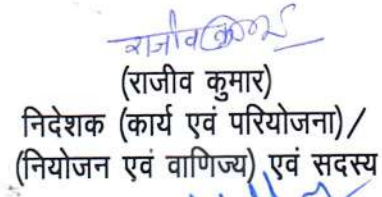 राजीव कुमार
(राजीव कुमार)
निदेशक (कार्य एवं परियोजना)/
(नियोजन एवं वाणिज्य) एवं सदस्य